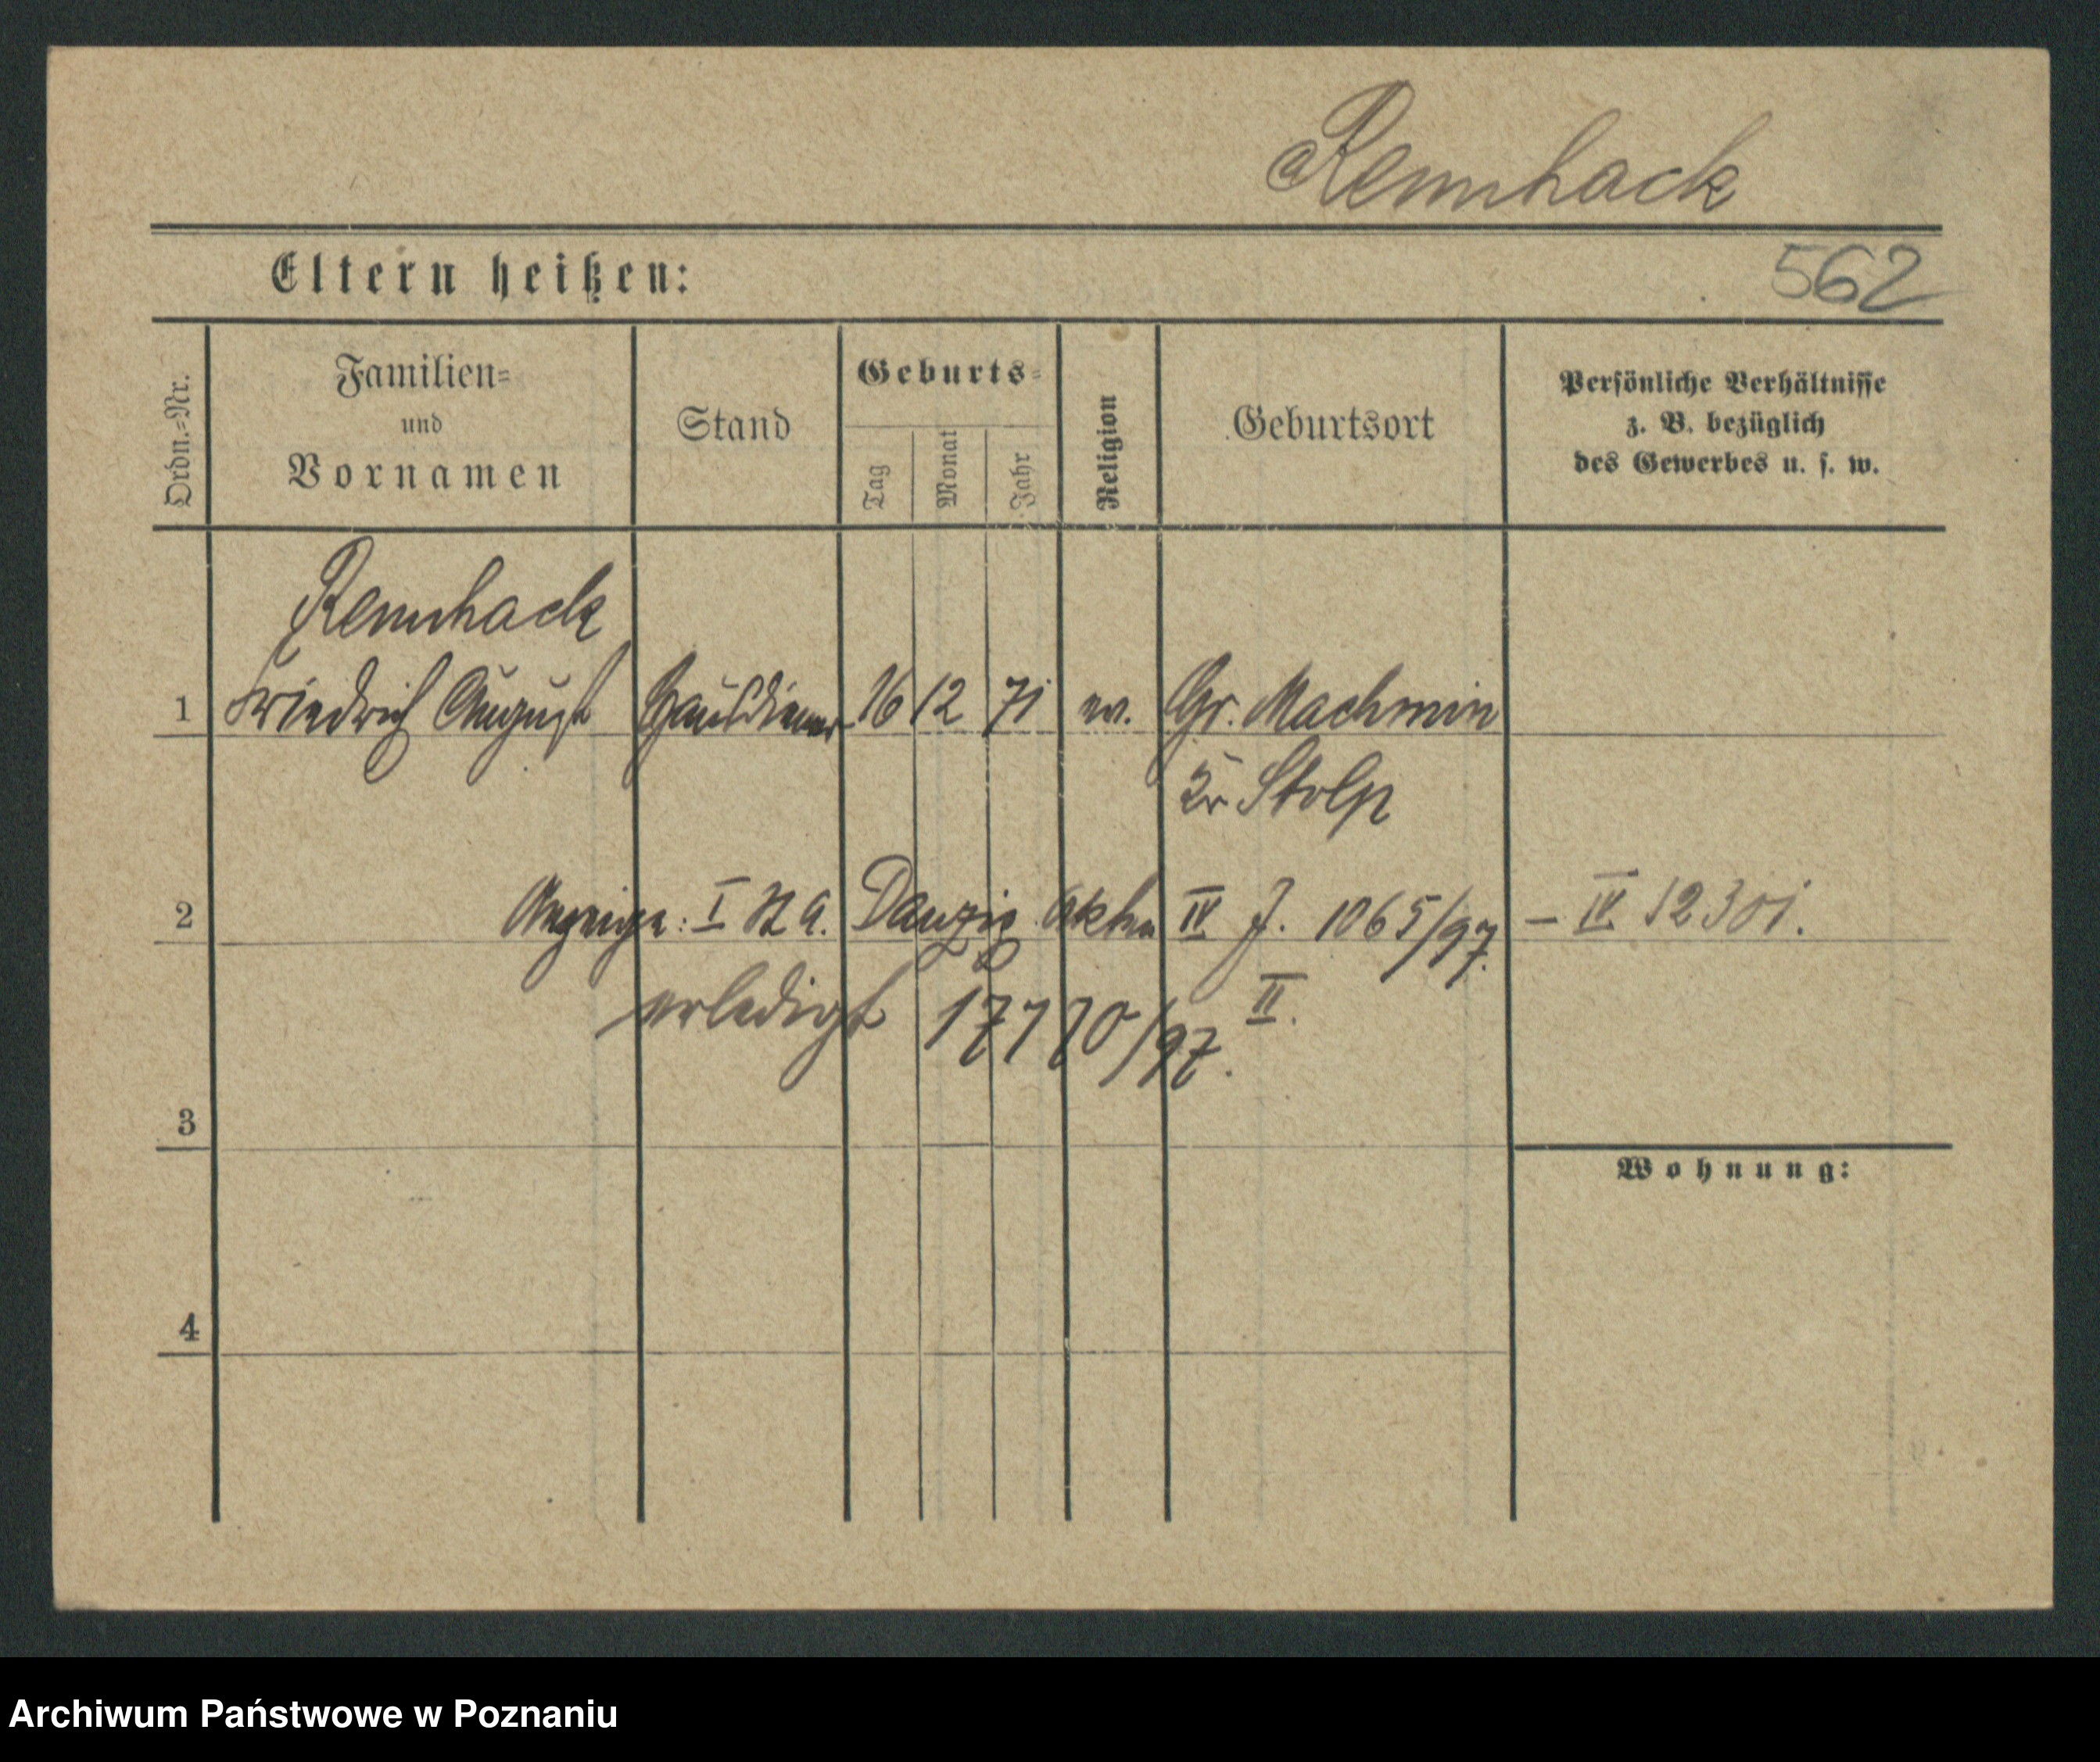 Rennhack
Eltern heißen:
562
Ordn.-Nr.
Familien-
und
Vornamen
Stand
Geburts-
Tag
Monat
Jahr
Religion
Geburtsort
Persönliche Verhältnisse
z. B. bezüglich
des Gewerbes u. s. w.
Rennhack
1 Friedrich August Hausdiener 16 12 71 ev. Gr. Machmin
Kr Stolp
2 Anzeige: I St A. Danzig Akten IV J. 1065/97. – IV 12301.
erledigt 17770/97. II.
3
Wohnung:
4
Archiwum Państwowe w Poznaniu